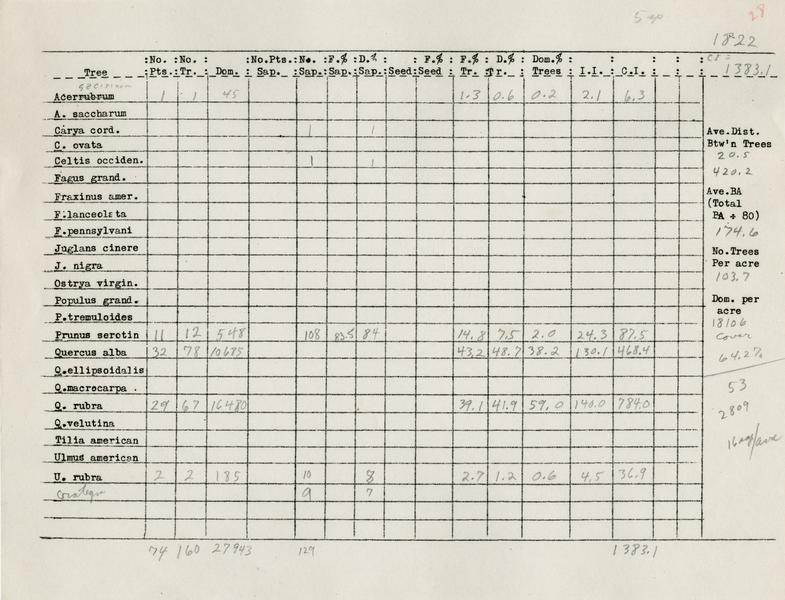 5 ap 28
1822
:No. :No. : :No.Pts.:No. :F.% :D.% : : F.% : F.% :D.% :Dom.% : : : : : CI = 1383.1
Tree :Pts.:Tr. : Dom. : Sap. :Sap.:Sap.:Sap.:Seed:Seed : Tr. :Tr. :Trees : I.I. : C.I. : : :
Acerrubrum 1 1 45 1.3 0.6 0.2 2.1 6.3
A. saccharum
Carya cord. 1 1 Ave.Dist.
C. ovata Btw'n Trees
Celtis occiden. 1 1 20.5
Fagus grand. 420.2
Fraxinus amer. Ave.BA
(Total
F.lanceolata PA ÷ 80)
F.pennsylvani 174.6
Juglans cinere No.Trees
J. nigra Per acre
Ostrya virgin. 103.7
Populus grand. Dom. per
P.tremuloides acre
18106
Prunus serotin 11 12 548 108 83.5 84 14.8 7.5 2.0 24.3 87.5 Cover
Quercus alba 32 78 10685 43.2 48.7 38.2 130.1 468.4 64.2%
Q.ellipsoidalis
Q.macrocarpa . 53
Q. rubra 29 67 16480 39.1 41.9 59.0 140.0 784.0 2809
Q.velutina
Tilia american
Ulmus american
U. rubra 2 2 185 10 8 2.7 1.2 0.6 4.5 36.9
9 7
74 160 27943 129 1383.1